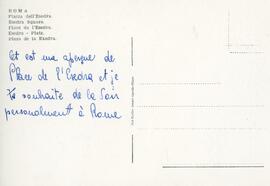 ROMA
Piazza dell'Esedra.
Esedra Square.
Place de l'Esedra.
Esedra - Platz.
Plaza de la Esedra.
Cet est una aperçue de
Place de l'Exedra et je
te souhaite de la voir
personalment à Rome